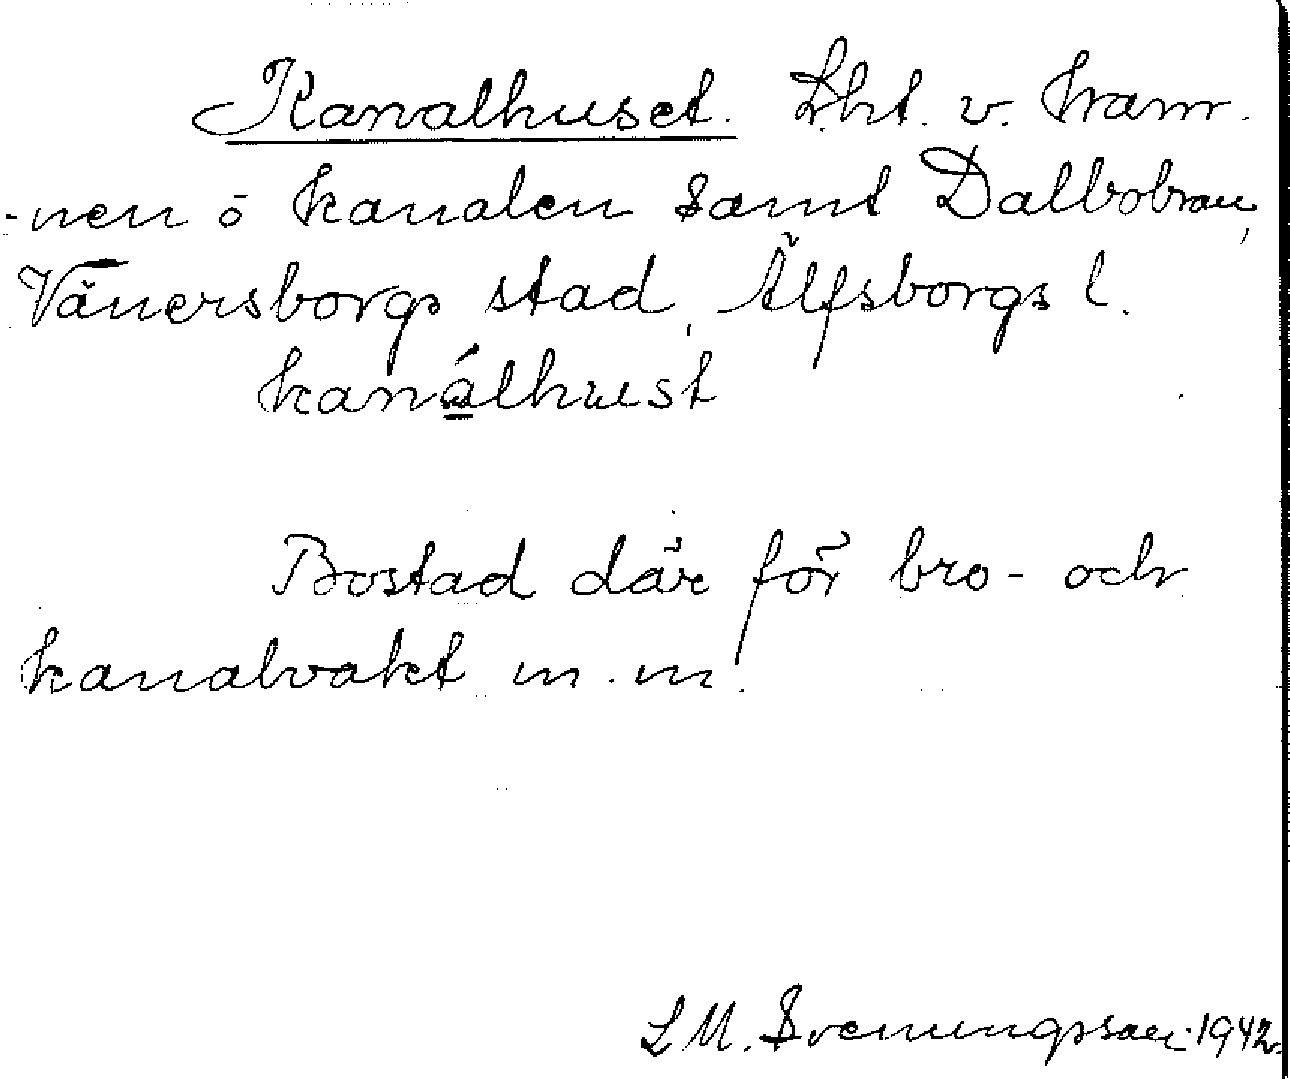 Kanalhuset. Lht. v. hamn-
-nen o kanalen samt Dalbobron,
Vänersborgs stad, Älfsborgs l.
kanálhust
Bostad där för bro- och
kanalvakt m.m.
L M. Svenungsson. 1942.